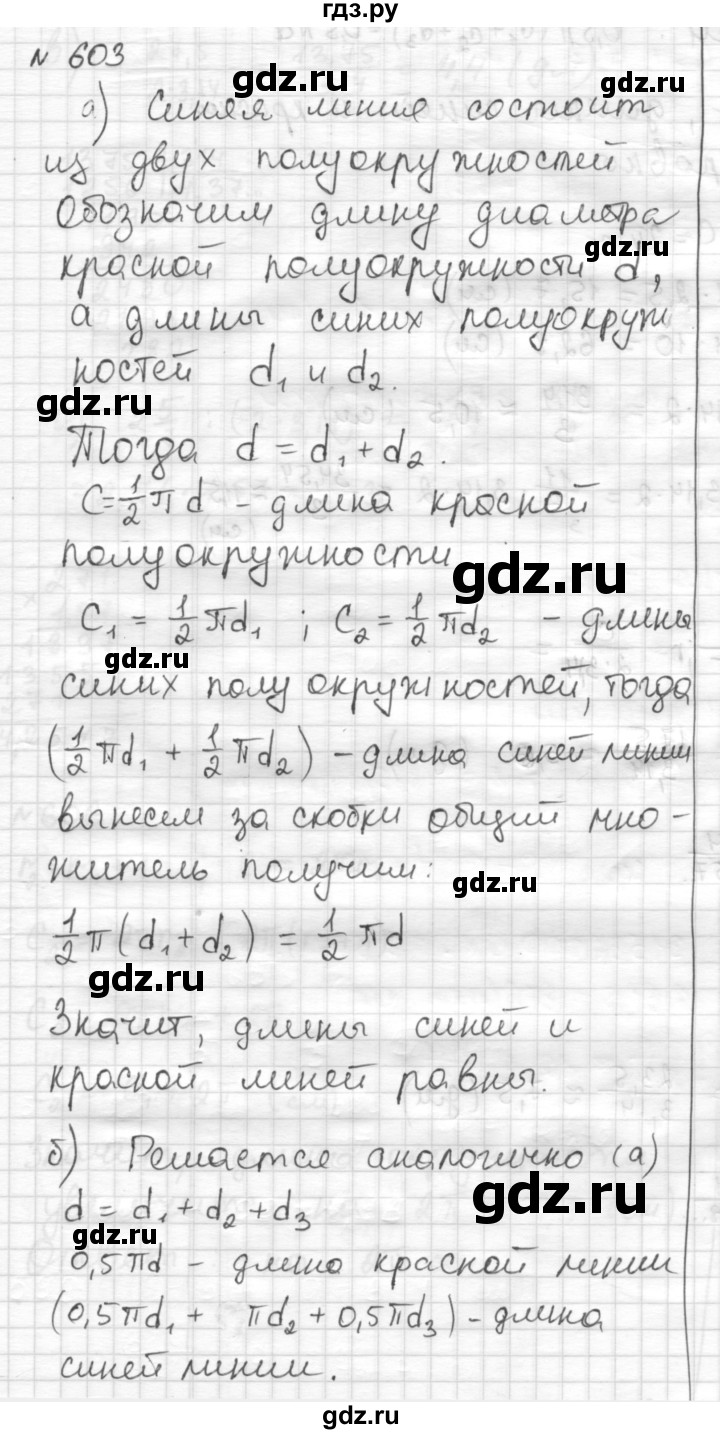 гдз.ру
N 603
gdz.ru
gdz.ru
а) Синяя линия состоит
из двух полуокружностей
Обозначим длину диаметра
gdz.ru
красной полуокружности d,
а длины синих полуокруж
ностей d₁ и d₂.
gdz.ru
Тогда d = d₁ + d₂.
C = 1/2 πd - длина красной
полуокружности
gdz.ru
C₁ = 1/2 πd₁ ; C₂ = 1/2 πd₂ - длины
gdz.ru
синих полуокружностей, тогда
(1/2 πd₁ + 1/2 πd₂) - длина синей линии
вынесем за скобки общий мно-
житель получим:
gdz.ru
1/2 π(d₁ + d₂) = 1/2 πd
gdz.ru
Значит, длины синей и
красной линей равны.
б) Решается аналогично (а)
gdz.ru
d = d₁ + d₂ + d₃
gdz.ru
0,5πd - длина красной линии
(0,5πd₁ + πd₂ + 0,5πd₃) - длина
синей линии.
gdz.ru